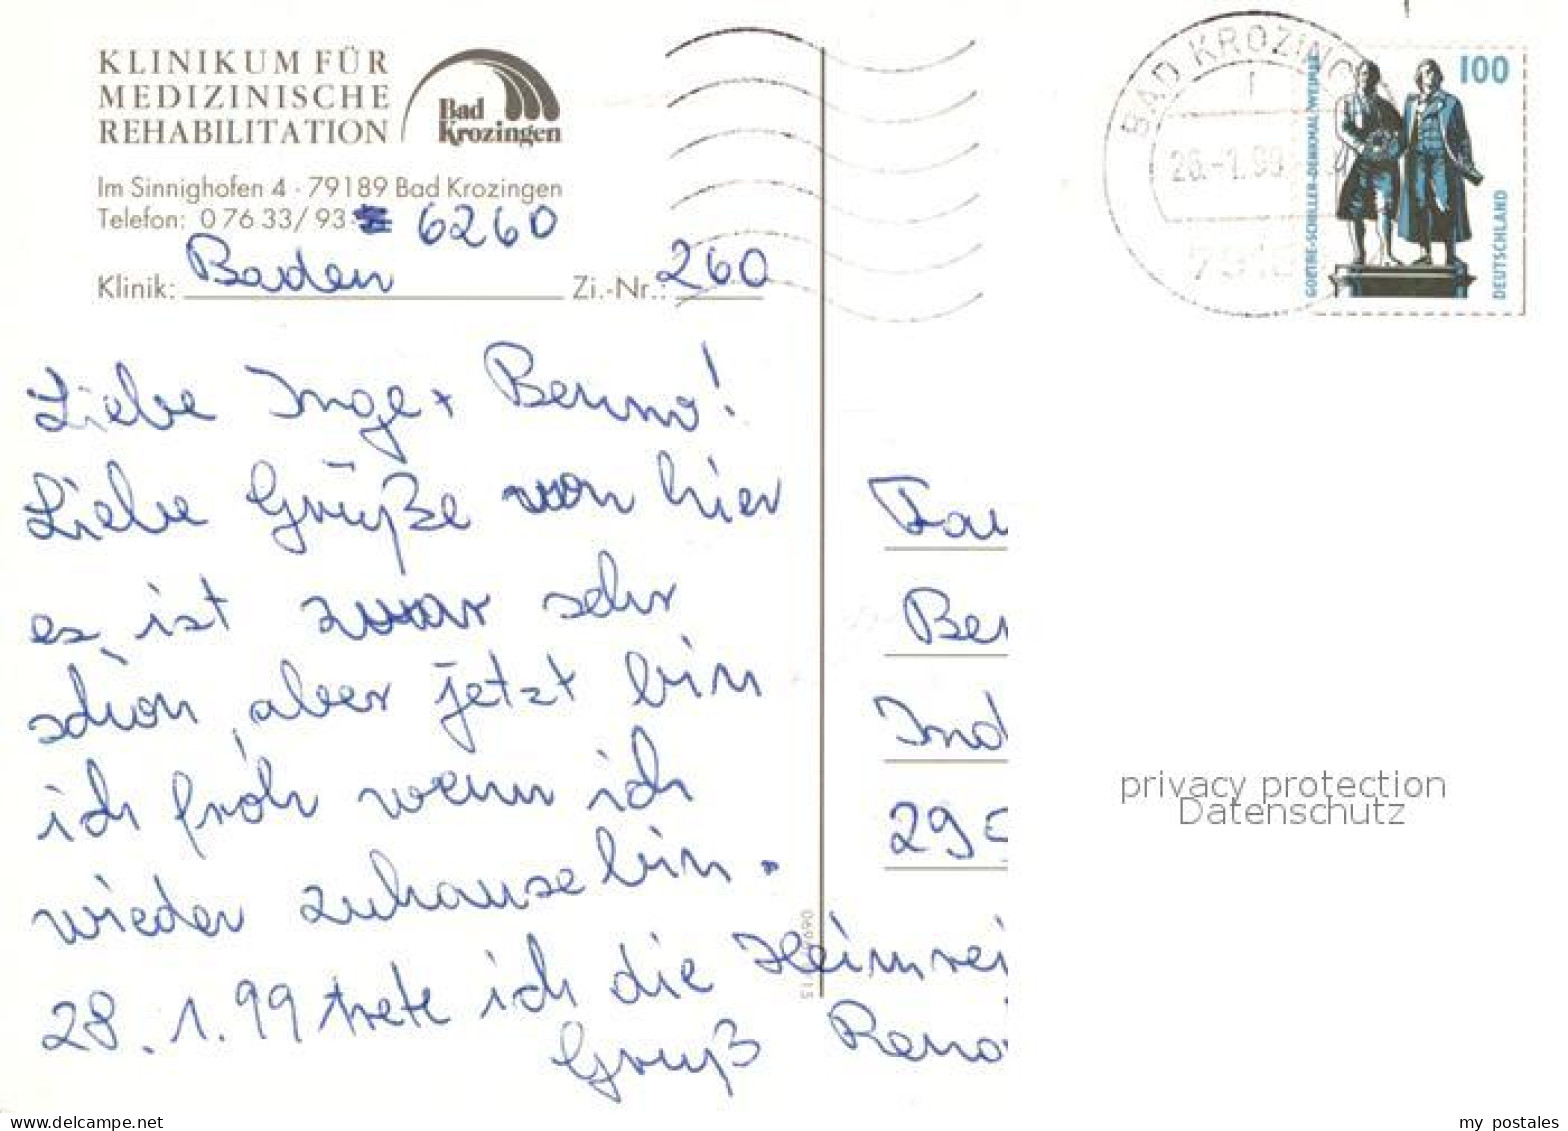 KLINIKUM FÜR
MEDIZINISCHE
REHABILITATION
Bad
Krozingen
Im Sinnighofen 4 · 79189 Bad Krozingen
Telefon: 0 76 33/ 93 6260
Klinik: Baden Zi.-Nr.: 260
Liebe Inge + Benno!
Liebe Grüße von hier
es ist zwar sehr
schön, aber jetzt bin
ich froh wenn ich
wieder zuhause bin.
28.1.99 trete ich die Heimrei
Gruß Rena
BAD KROZING
26.-1.99
100
GOETHE-SCHILLER-DENKMAL WEIMAR
DEUTSCHLAND
Fam
Ber
Ind
29
privacy protection
Datenschutz
www.delcampe.net
my_postales